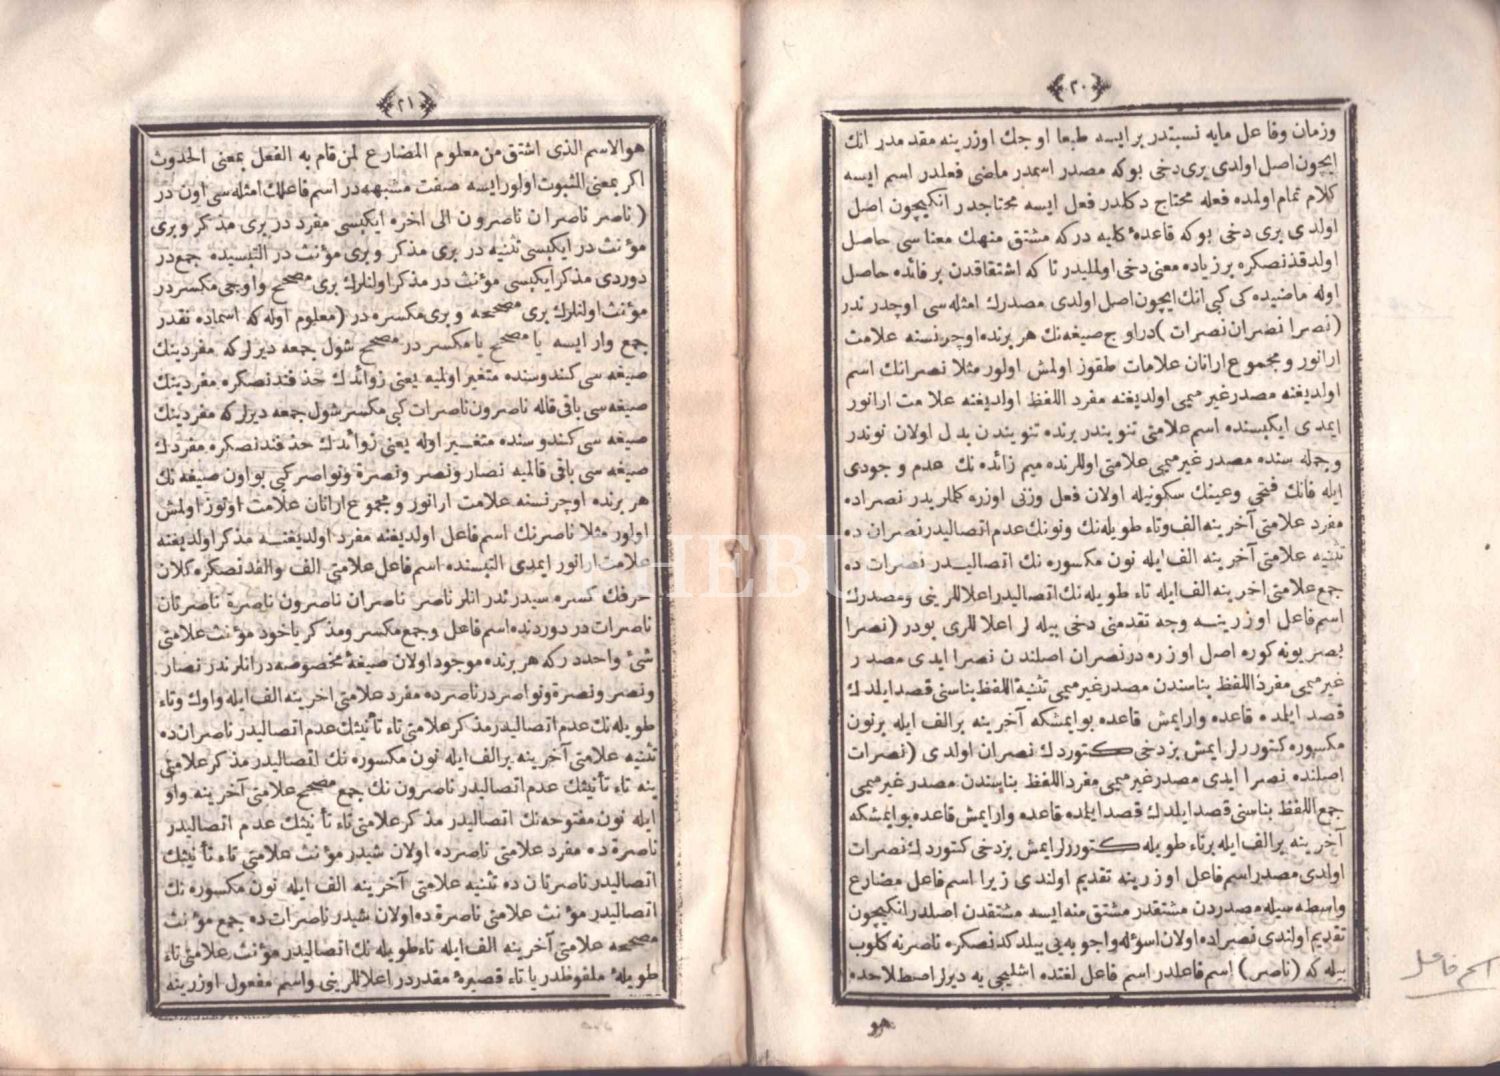 ٢٠
وزمان وفاعل مایه نسبتدر بر ایسه طبعا اوجك اوزرینه مقدمدر انك
ایچون اصل اولدی بری دخی بوکه مصدر اسمدر ماضی فعلدر اسم ایسه
کلام تمام اولمده فعله محتاج دکلدر فعل ایسه محتاجدر انکیچون اصل
اولدی بری دخی بوکه قاعدهٔ کلیه درکه مشتق منهك معناسی حاصل
اولدقدنصکره بر زیاده معنی دخی اولملیدر تا که اشتقاقدن بر فائده حاصل
اوله ماضیده کی کبی انك ایچون اصل اولدی مصدرك امثله سی اوچدر ندر
(نصرا نصران نصرات) در اوچ صیغه نك هر برنده اوچر نسنه علامت
ارانور و مجموع ارانان علامات طقوز اولمش اولور مثلا نصرانك اسم
اولدیغنه مصدر غیر میمی اولدیغنه مفرد اللفظ اولدیغنه علامت ارانور
ایمدی ایکیسنده اسم علامتی تنویندر برنده تنویندن بدل اولان نوندر
وجمله سنده مصدر غیر میمی علامتی اوللرنده میم زائده نك عدم وجودی
ایله فانك فتحی وعینك سکونیله اولان فعل وزنی اوزره کلملریدر نصراده
مفرد علامتی آخرینه الف وتاء طویله نك ونونك عدم اتصالیدر نصران ده
تثنیه علامتی آخرینه الف ایله نون مکسوره نك اتصالیدر نصرات ده
جمع علامتی اخرینه الف ایله تاء طویله نك اتصالیدر اعلاللرینی ومصدرك
اسم فاعل اوزرینه وجه تقدمنی دخی بیله لر اعلاللری بودر (نصرا
بصریونه کوره اصل اوزره در نصران اصلندن نصرا ایدی مصدر
غیر میمی مفرد اللفظ بناسندن مصدر غیر میمی تثنیة اللفظ بناسنی قصد ایلدك
قصد ایلمده قاعده وارایمش قاعده بوایمشکه آخرینه بر الف ایله بر نون
مکسوره کتورر لر ایمش بزدخی کتوردك نصران اولدی (نصرات
اصلنده نصرا ایدی مصدر غیر میمی مفرد اللفظ بناسندن مصدر غیر میمی
جمع اللفظ بناسنی قصد ایلدك قصد ایلمده قاعده وارایمش قاعده بوایمشکه
آخرینه بر الف ایله بر تاء طویله کتوررلر ایمش بزدخی کتوردك نصرات
اولدی مصدر اسم فاعل اوزرینه تقدیم اولندی زیرا اسم فاعل مضارع
واسطه سیله مصدردن مشتقدر مشتق منه ایسه مشتقدن اصلدر انکیچون
تقدیم اولندی نصراده اولان اسؤله واجوبه یی بیلدکدنصکره ناصرنه کلوب
بیله که (ناصر) اسم فاعلدر اسم فاعل لغتده اشلیجی یه دیرلر اصطلاحده
هو
اسم فاعل
٢١
هوالاسم الذی اشتق من معلوم المضارع لمن قام به الفعل بمعنی الحدوث
اکر بمعنی الثبوت اولورایسه صفت مشبهه در اسم فاعلك امثله سی اون در
(ناصر ناصران ناصرون الی اخره ایکیسی مفرد در بری مذکر وبری
مؤنث در ایکیسی تثنیه در بری مذکر وبری مؤنث در التیسیده جمع در
دوردی مذکر ایکیسی مؤنث در مذکر اولنلرك بری مصحح واوچی مکسر در
مؤنث اولنلرك بری مصححه وبری مکسره در (معلوم اوله که اسماده نقدر
جمع وار ایسه یا مصحح یا مکسر در مصحح شول جمعه دیرلر که مفردینك
صیغه سی کندوسنده متغیر اولمیه یعنی زوائدك حذفندنصکره مفردینك
صیغه سی باقی قاله ناصرون ناصرات کبی مکسر شول جمعه دیرلر که مفردینك
صیغه سی کندوسنده متغیر اوله یعنی زوائدك حذفندنصکره مفردك
صیغه سی باقی قالمیه نصار ونصر ونصرة ونواصر کبی بو اون صیغه نك
هر برنده اوچر نسنه علامت ارانور ومجموع ارانان علامت اوتوز اولمش
اولور مثلا ناصرنك اسم فاعل اولدیغنه مفرد اولدیغنه مذکر اولدیغنه
علامت ارانور ایمدی التیسنده اسم فاعل علامتی الف والفدنصکره کلان
حرفك کسره سیدر ندر انلر ناصر ناصران ناصرون ناصرة ناصرتان
ناصرات در دوردنده اسم فاعل وجمع مکسر ومذکر یاخود مؤنث علامتی
شیء واحددر که هر برنده موجود اولان صیغهٔ مخصوصه در انلر ندر نصار
ونصر ونصرة ونواصر در ناصرده مفرد علامتی اخرینه الف ایله واوك وتاء
طویله نك عدم اتصالیدر مذکر علامتی تاء تأنیثك عدم اتصالیدر ناصران ده
تثنیه علامتی آخرینه بر الف ایله نون مکسوره نك اتصالیدر مذکر علامتی
ینه تاء تأنیثك عدم اتصالیدر ناصرون نك جمع مصحح علامتی آخرینه واو
ایله نون مفتوحه نك اتصالیدر مذکر علامتی تاء تأنیثك عدم اتصالیدر
ناصرة ده مفرد علامتی ناصرده اولان شیدر مؤنث علامتی تاء تأنیثك
اتصالیدر ناصرتان ده تثنیه علامتی آخرینه الف ایله نون مکسوره نك
اتصالیدر مؤنث علامتی ناصرة ده اولان شیدر ناصرات ده جمع مؤنث
مصححه علامتی آخرینه الف ایله تاء طویله نك اتصالیدر مؤنث علامتی تاء
طویلهٔ ملفوظدر یا تاء قصیرهٔ مقدردر اعلاللرینی واسم مفعول اوزرینه
HEBU